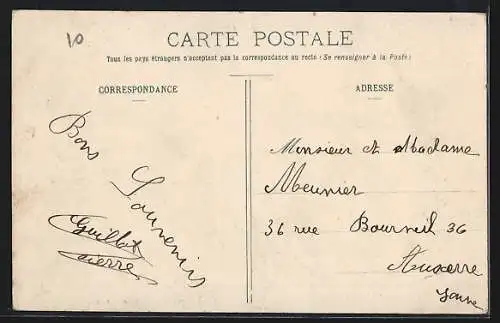 10
CARTE POSTALE
Tous les pays étrangers n'acceptent pas la correspondance au recto (Se renseigner à la Poste)
CORRESPONDANCE
Bons
Souvenirs
Guillot
Pierre
ADRESSE
Monsieur et Madame
Meunier
36 rue Bourneil 36
Auxerre
Yonne